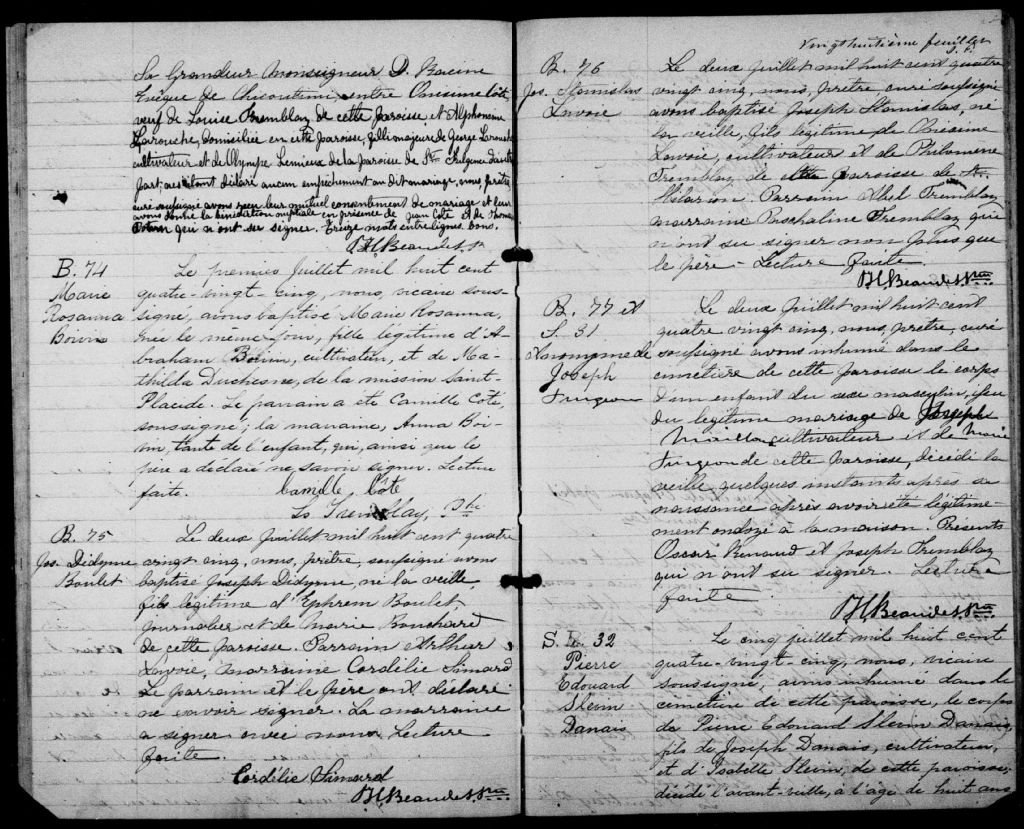 Sa Grandeur Monseigneur D. Racine
Evêque de Chicoutimi, entre Onesime Côté,
veuf de Louise Tremblay de cette paroisse et Alphonsine
Larouche, domiciliée en cette paroisse, fille majeure de George Larouche
cultivateur et de Olympe Lemieux de la paroisse de St Fulgence d'autre
part; ne s'étant déclaré aucun empêchement au dit mariage, nous, prêtre
curé soussigné avons reçu leur mutuel consentement de mariage et leur
avons donné la bénédiction nuptiale en présence de Jean Côté et de Thomas
qui n'ont su signer. Treize mots entrelignes bons.
B. 74
Marie
Rosanna
Boivin
Le premier Juillet mil huit cent
quatre-vingt-cinq, nous, vicaire sous-
signé, avons baptisé Marie Rosanna,
née le même jour, fille légitime d'A-
braham Boivin, cultivateur, et de Ma-
thilda Duchesne, de la mission Saint-
Placide. Le parrain a été Camille Côté,
soussigné; la marraine, Anna Boi-
vin, tante de l'enfant, qui, ainsi que le
père a déclaré ne savoir signer. Lecture
faite.
Camille Côté
Ls Tremblay, Ptre
B. 75
Jos. Didyme
Boulet
Le deux Juillet mil huit cent quatre
vingt cinq, nous, prêtre, soussigné avons
baptisé Joseph Didyme, né la veille,
fils légitime d'Ephrem Boulet,
journalier et de Marie Bouchard
de cette paroisse. Parrain Arthur
Lavoie, marraine Cordélie Simard
Le parrain et le père ont déclaré
ne savoir signer. La marraine
a signé avec nous. Lecture
faite.
Cordélie Simard
Vingt huitième feuillet
B. 76
Jos. Stanislas
Lavoie
Le deux Juillet mil huit cent quatre
vingt cinq, nous, prêtre, curé soussigné
avons baptisé Joseph Stanislas, né
la veille, fils légitime de Onésime
Lavoie, cultivateur et de Philomène
Tremblay de paroisse de St
Hilarion. Parrain Abel Tremblay
marraine Paschaline Tremblay qui
n'ont su signer non plus que
le père - Lecture faite
B. 77 et
S. 31
Anonyme de
Joseph
Turgeon
Le deux Juillet mil huit cent
quatre vingt cinq, nous, prêtre, curé
soussigné avons inhumé dans le
cimetière de cette paroisse le corps
d'un enfant du sexe masculin, issu
du légitime mariage de Joseph
cultivateur et de Marie
Turgeon de cette paroisse, décédé la
veille, quelques instants après sa
naissance après avoir été légitime-
ment ondoyé à la maison. Présents
Oscar Renaud et Joseph Tremblay
qui n'ont su signer. Lecture
faite.
S. 32
Pierre
Edouard
Slevin
Danais
Le cinq juillet mil huit cent
quatre-vingt-cinq, nous, vicaire
soussigné, avons inhumé dans le
cimetière de cette paroisse, le corps
de Pierre Edouard Slevin Danais,
fils de Joseph Danais, cultivateur,
et d'Isabelle Slevin, de cette paroisse,
décédé l'avant-veille, à l'âge de huit ans